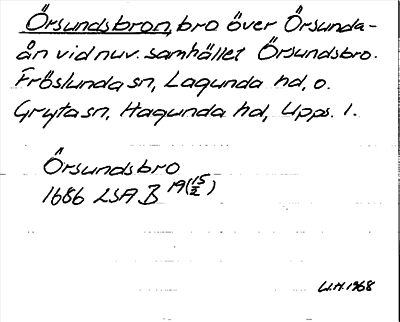 Örsundsbron, bro över Örsunda-
ån vid nuv. samhället Örsundsbro.
Fröslunda sn, Lagunda hd, o.
Gryta sn, Hagunda hd, Upps. l.
Örsundsbro
1686 LSA B 19(15/2)
W.H. 1968